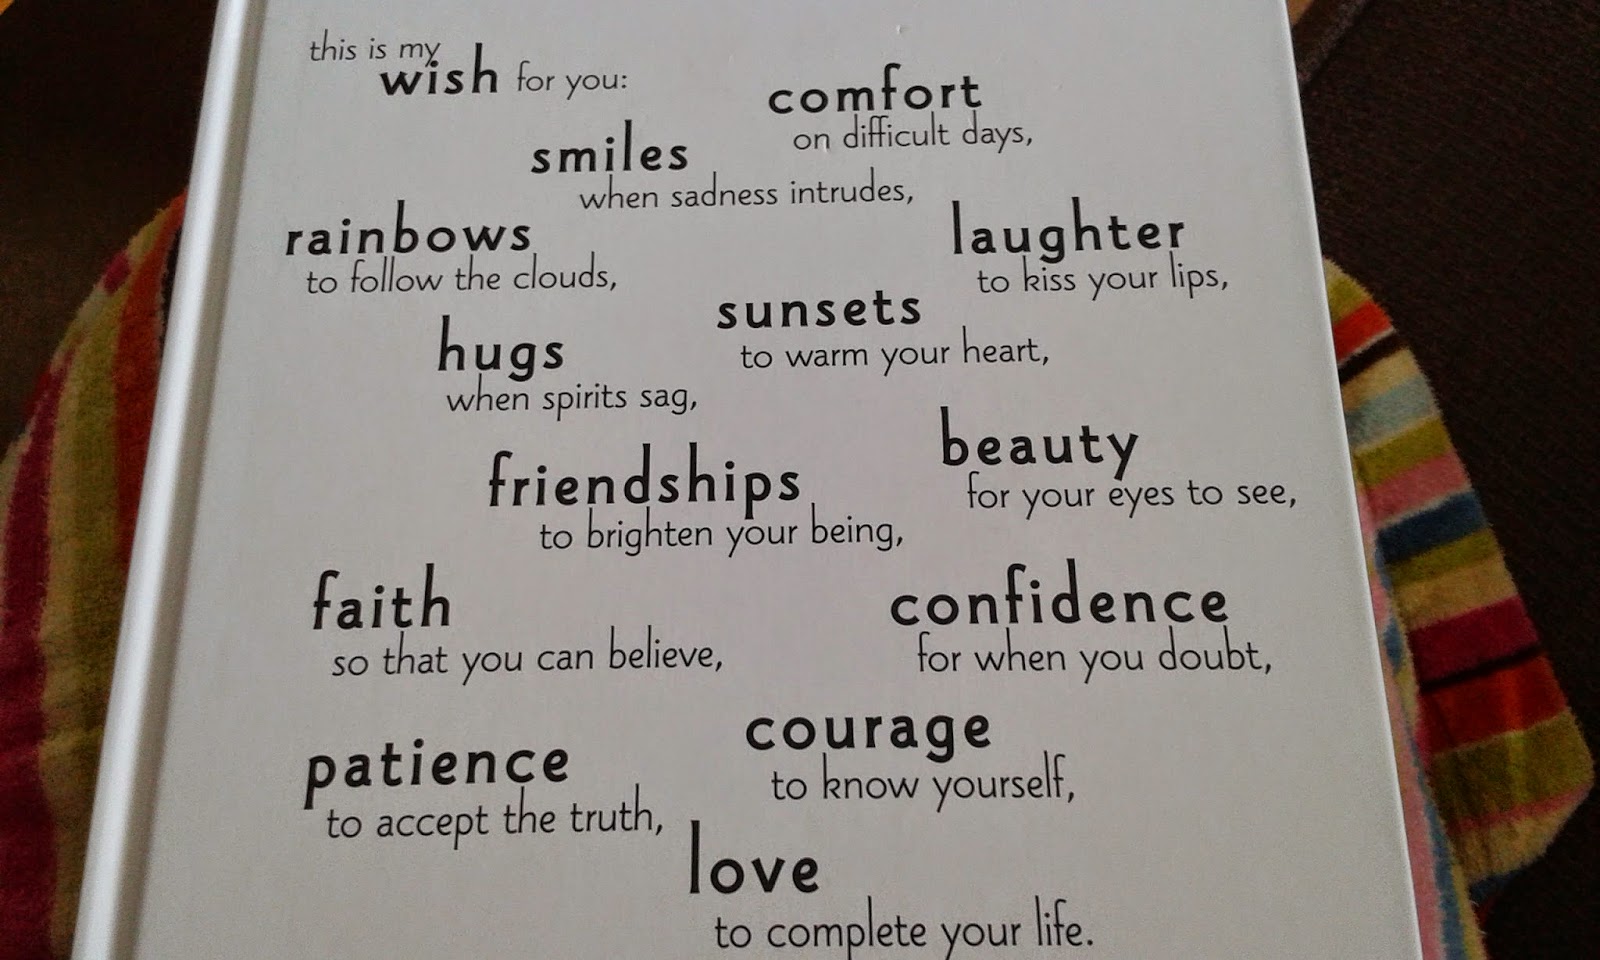 this is my
wish for you:
comfort
on difficult days,
smiles
when sadness intrudes,
rainbows
to follow the clouds,
laughter
to kiss your lips,
sunsets
to warm your heart,
hugs
when spirits sag,
beauty
for your eyes to see,
friendships
to brighten your being,
faith
so that you can believe,
confidence
for when you doubt,
courage
to know yourself,
patience
to accept the truth,
love
to complete your life.